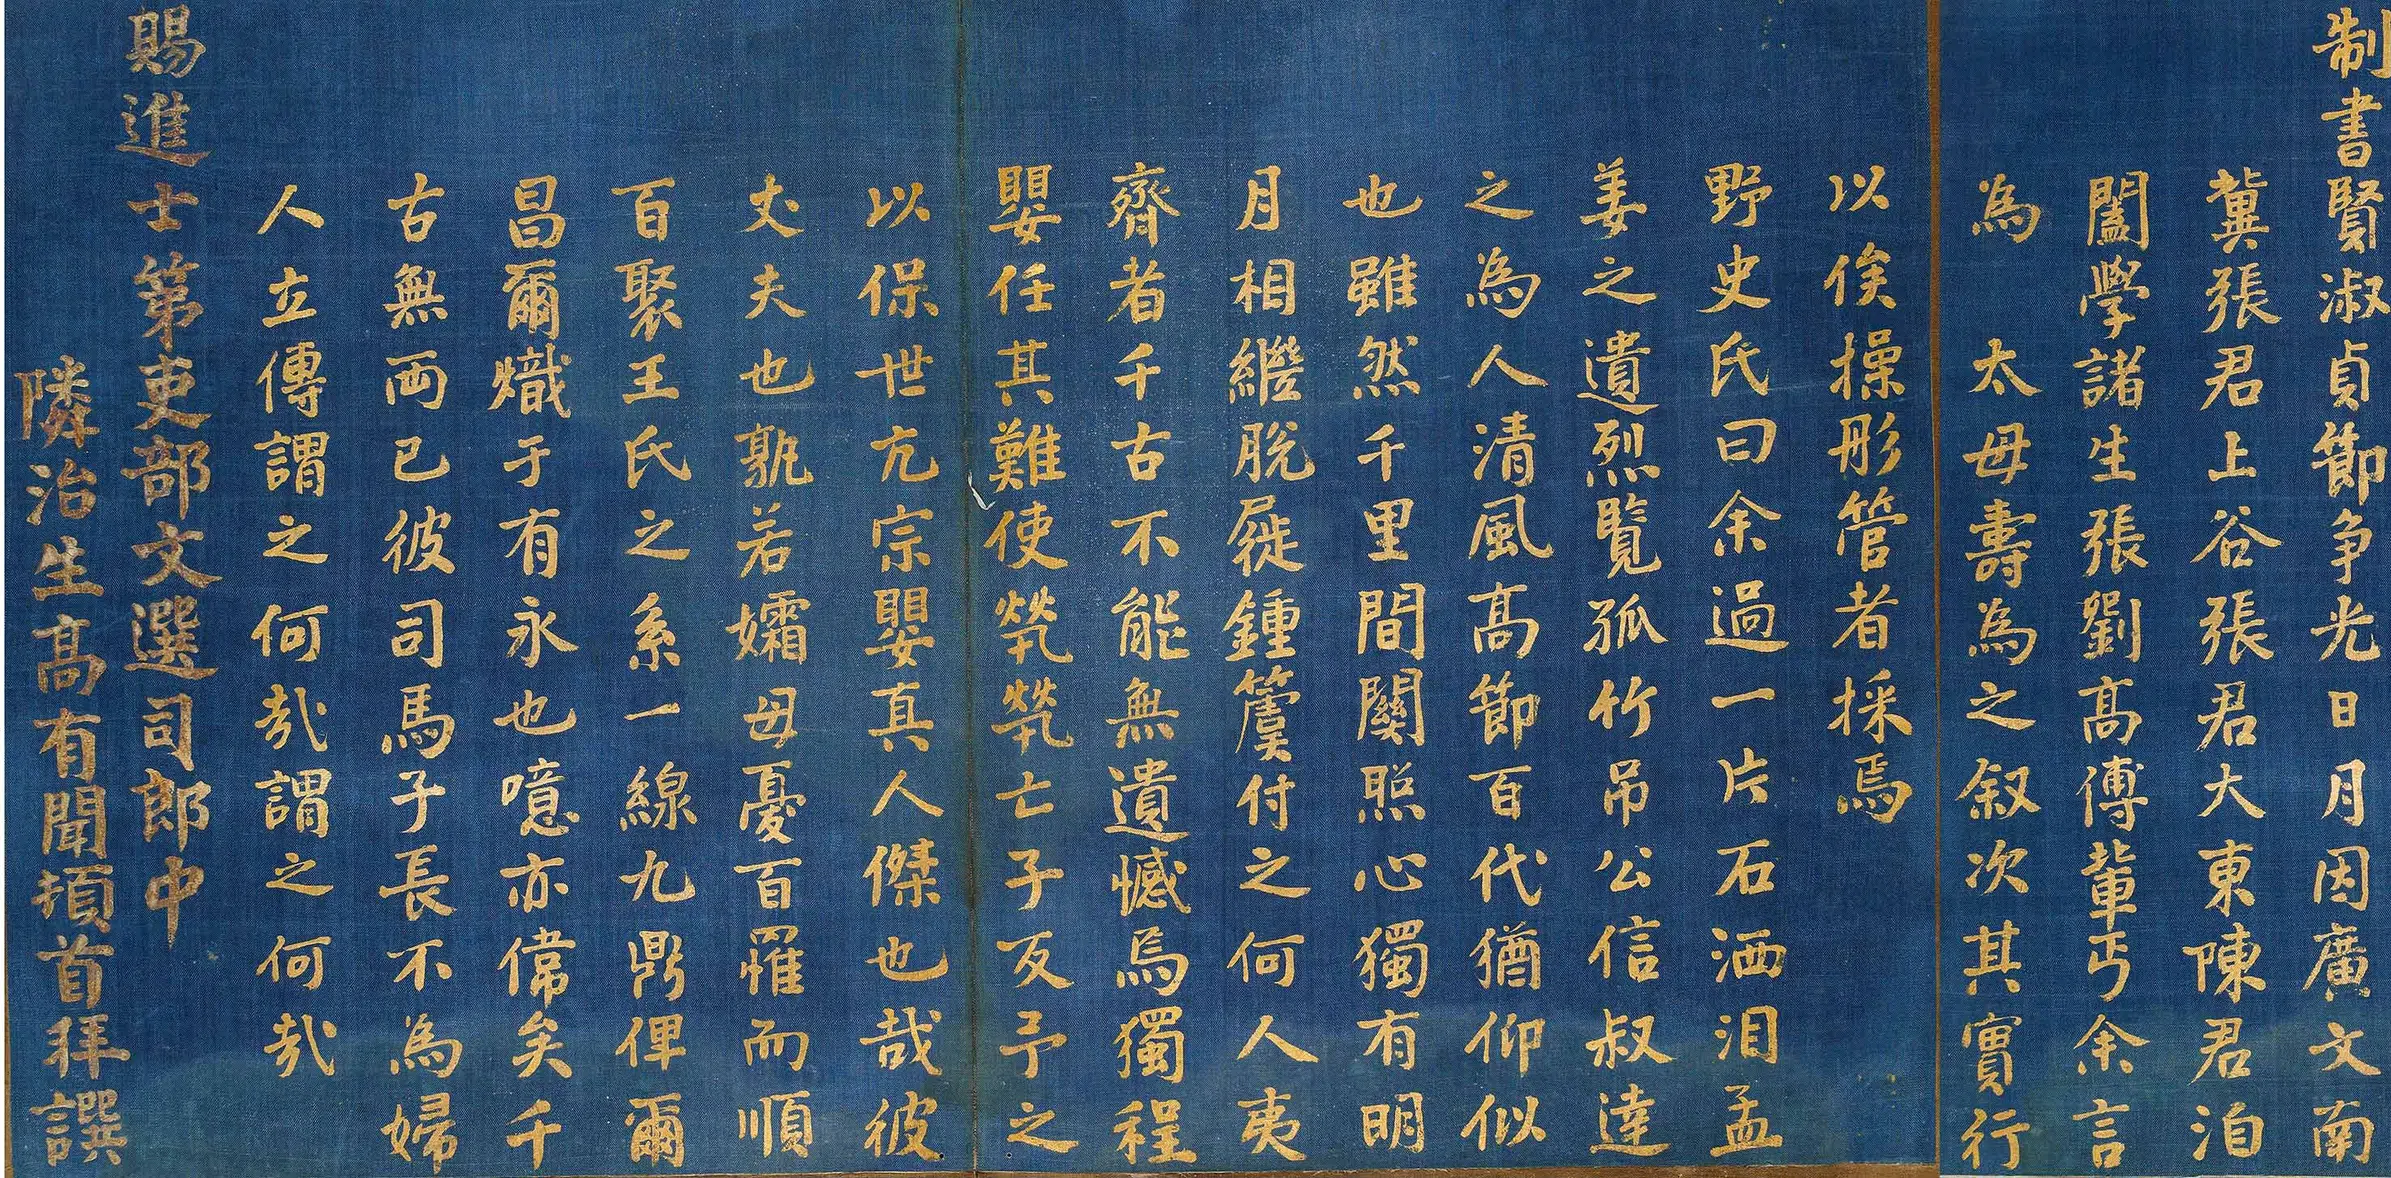 制書賢淑貞節争光日月因廣文南
冀張君上谷張君大東陳君洎
闔學諸生張劉高傅輩丐余言
為太母壽為之叙次其實行
以俟操彤管者採焉
野史氏曰余過一片石洒泪孟
姜之遺烈覽孤竹吊公信叔達
之為人清風高節百代猶仰似
也雖然千里間關照心獨有明
月相繼脫屣鍾簴付之何人夷
齊者千古不能無遺憾焉獨程
嬰任其難使煢煢亡子反予之
以保世亢宗嬰真人傑也哉彼
丈夫也孰若孀母憂百罹而順
百聚王氏之系一線九鼎俾爾
昌爾熾于有永也噫亦偉矣千
古無两已彼司馬子長不為婦
人立傳謂之何哉謂之何哉
賜進士第吏部文選司郎中
隣治生高有聞頓首拜譔